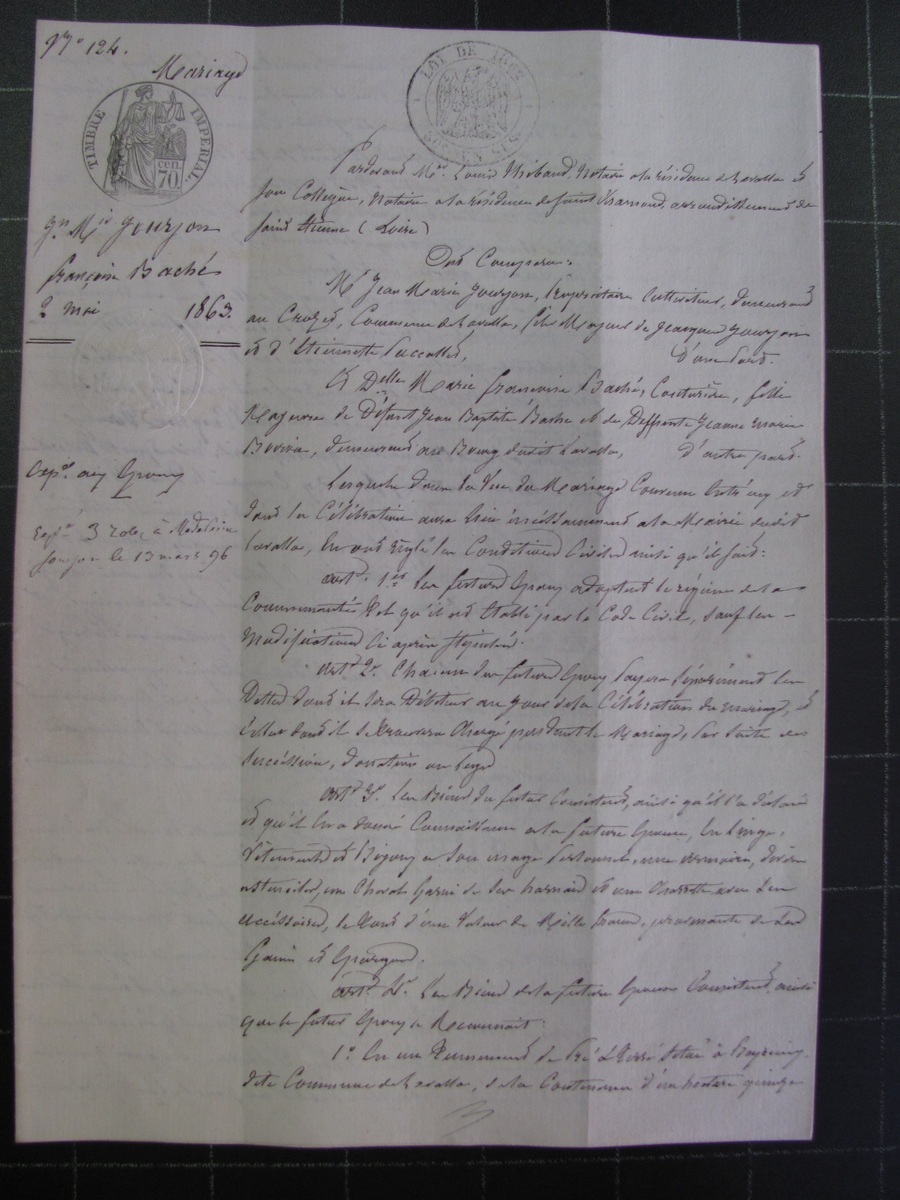 No 124.
Mariage
TIMBRE IMPERIAL
cen. 70
LOI DE 1862
Jn Mie Gourjon
françoise Baché
2 mai 1863.
Expon aux Epoux
3 roles à
Gourjon le 13 mars 96
Pardevant Me Louis Thibaud, Notaire a la résidence de Lavalla et
son Collègue, Notaire a la résidence de Saint Chamond, arrondissement de
Saint Etienne (Loire)
Ont Comparu:
Mr Jean Marie Gourjon, Propriétaire Cultivateur, demeurant
au Crozet, Commune de Lavalla, fils Majeur de Jacques Gourjon
et d'Etiennette d'une part.
Et Delle Marie françoise Baché, Couturière, fille
Majeure de Défunt Jean Baptiste Baché et de Deffunte Jeanne Marie
demeurant au Bourg dudit Lavalla, d'autre part.
Lesquels dans la Vue du Mariage Convenu entr'eux et
dont la Célébration aura lieu incéssamment a la Mairie dudit
Lavalla, en ont réglé les Conditions Civiles ainsi qu'il suit:
artle 1er Les futurs Epoux adoptent le régime de la
Communauté tel qu'il est établi par le Code Civil, sauf les
Modifications Ci après stipulées.
artle 2e Chacun des futurs Epoux payera séparément les
Dettes dont il sera Débiteur au jour de la Célébration du mariage, et
celles dont il se trouvera Chargé pendant le Mariage, par suite de
Succession, donation ou legs
artle 3e Les Biens du futur Consistent, ainsi qu'il l'a déclaré
et qu'il en a donné Connaissance a la future Epouse, en linge,
Vêtements et Bijoux a son usage personnel, une armoire, divers
ustensiles, un Cheval Garni de ses harnais et une Charrette avec ses
accessoires, le tout d'une Valeur de Mille francs, provenante de ses
Gains et Epargnes.
artle 4e Les Biens de la future Epouse Consistent, ainsi
que le futur Epoux le Reconnait:
1o En un tènement de Pré et Terre situé à
dite Commune de Lavalla, de la Contenance d'un hectare quinze